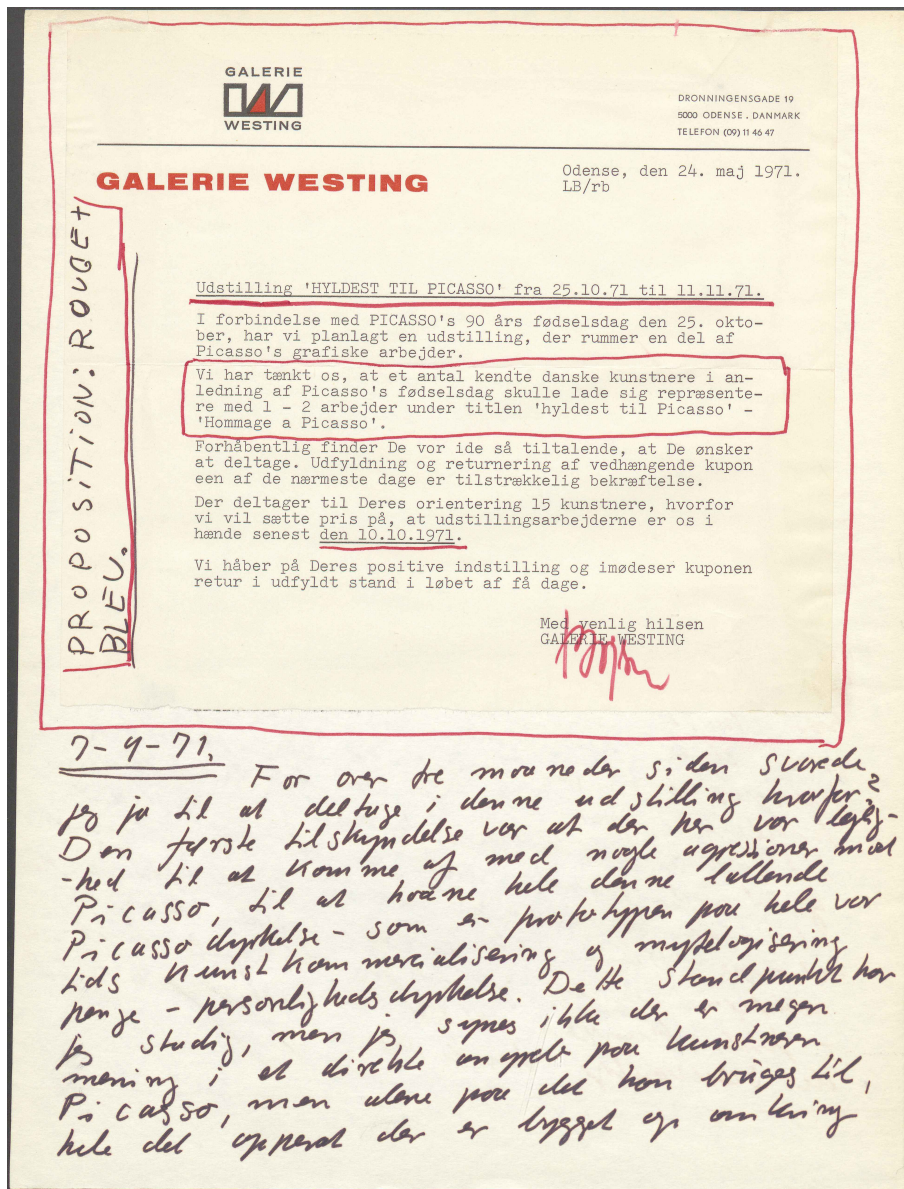 GALERIE
WESTING
DRONNINGENSGADE 19
5000 ODENSE . DANMARK
TELEFON (09) 11 46 47
GALERIE WESTING
Odense, den 24. maj 1971.
LB/rb
PROPOSITION: ROUGE +
BLEU.
Udstilling 'HYLDEST TIL PICASSO' fra 25.10.71 til 11.11.71.
I forbindelse med PICASSO's 90 års fødselsdag den 25. okto-
ber, har vi planlagt en udstilling, der rummer en del af
Picasso's grafiske arbejder.
Vi har tænkt os, at et antal kendte danske kunstnere i an-
ledning af Picasso's fødselsdag skulle lade sig repræsente-
re med 1 - 2 arbejder under titlen 'hyldest til Picasso' -
'Hommage a Picasso'.
Forhåbentlig finder De vor ide så tiltalende, at De ønsker
at deltage. Udfyldning og returnering af vedhængende kupon
een af de nærmeste dage er tilstrækkelig bekræftelse.
Der deltager til Deres orientering 15 kunstnere, hvorfor
vi vil sætte pris på, at udstillingsarbejderne er os i
hænde senest den 10.10.1971.
Vi håber på Deres positive indstilling og imødeser kuponen
retur i udfyldt stand i løbet af få dage.
Med venlig hilsen
GALERIE WESTING
7-9-71.
For over tre maaneder siden svarede
jeg ja til at deltage i denne udstilling hvorfor?
Den første tilskyndelse var at der her var lejlig-
-hed til at komme af med nogle agressioner mod
Picasso, til at haane hele denne lallende
Picasso dyrkelse - som er prototypen paa hele vor
tids kunst kommercialisering og mytologisering
penge - personlighedsdyrkelse. Dette standpunkt har
jeg stadig, men jeg synes ikke der er megen
mening i et direkte angreb paa kunstneren
Picasso, men alene paa det han bruges til,
hele det apparat der er bygget op omkring